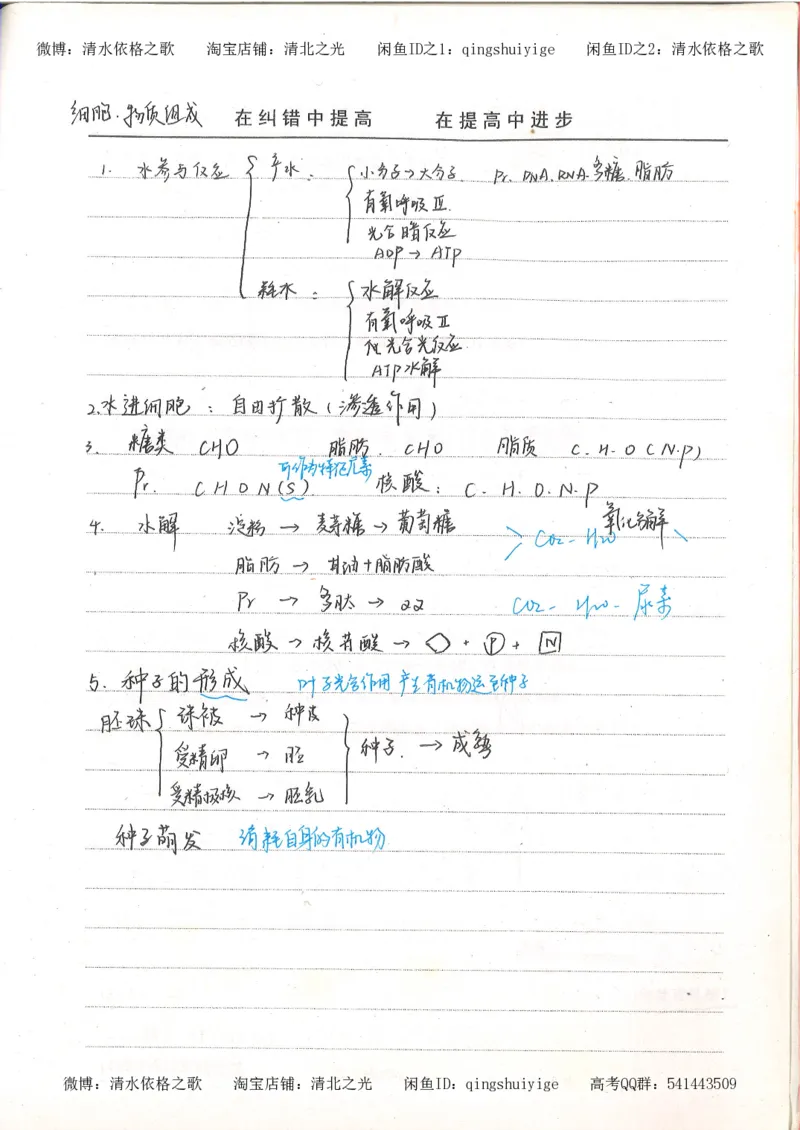 微博：清水依格之歌 淘宝店铺：清北之光 闲鱼ID之1：qingshuiyige 闲鱼ID之2：清水依格之歌
细胞·物质组成 在纠错中提高 在提高中进步
1. 水参与反应 产水： 小分子→大分子. Pr. DNA. RNA. 多糖. 脂肪
有氧呼吸Ⅲ.
光合暗反应
ADP → ATP
耗水： 水解反应
有氧呼吸Ⅱ
光合光反应
ATP水解
2.水进细胞：自由扩散（渗透作用）
3. 糖类 CHO 脂肪. CHO 脂质 C.H.O(N.P)
可作为特征元素
Pr. CHON(S) 核酸：C.H.O.N.P
氧化分解
4. 水解 淀粉 → 麦芽糖 → 葡萄糖 CO2-H2O
脂肪 → 甘油+脂肪酸
Pr → 多肽 → aa CO2-H2O-尿素
核酸 → 核苷酸 → + P + N
5. 种子的形成 叶子光合作用产生有机物运至种子
胚珠 珠被 → 种皮
受精卵 → 胚 种子. → 成熟
受精极核 → 胚乳
种子萌发 消耗自身的有机物
微博：清水依格之歌 淘宝店铺：清北之光 闲鱼ID：qingshuiyige 高考QQ群：541443509